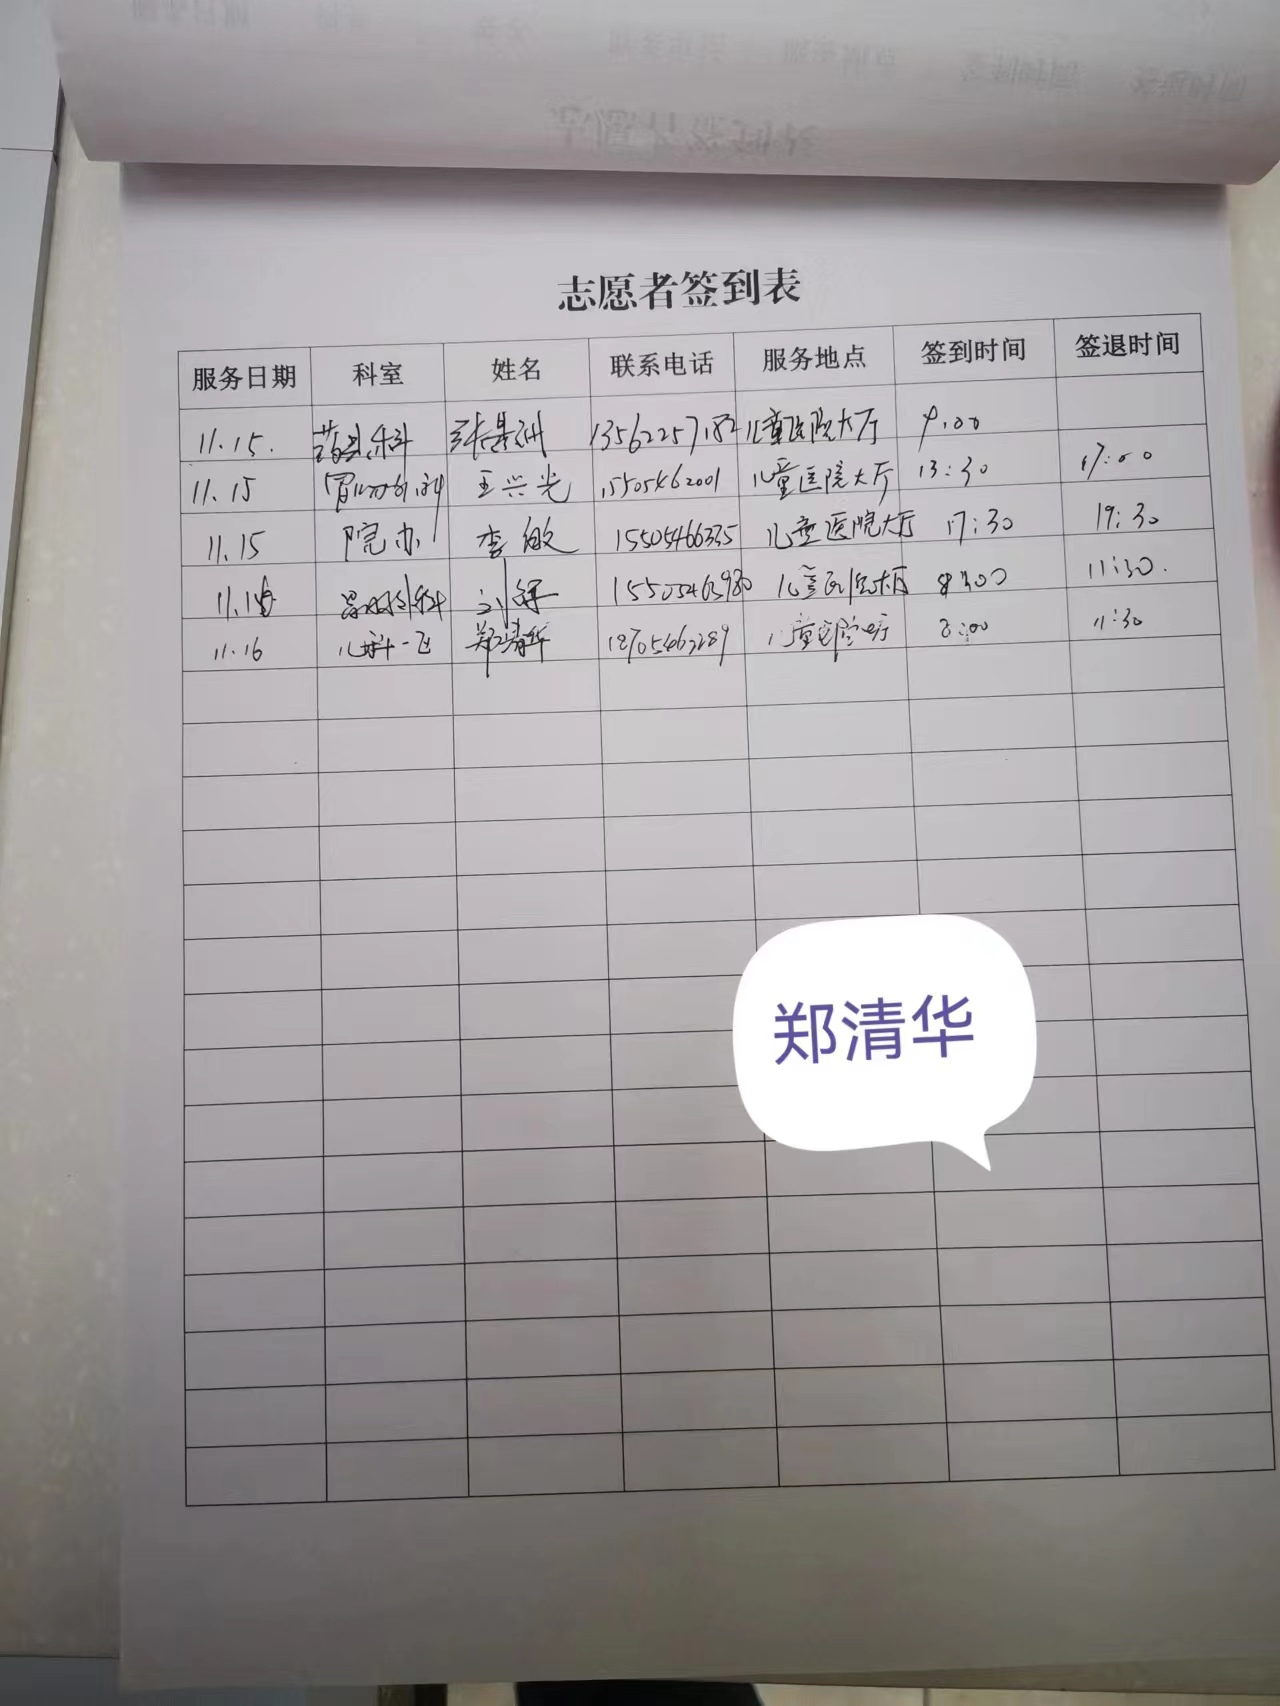 志愿者签到表
服务日期 科室 姓名 联系电话 服务地点 签到时间 签退时间
11.15. 药剂科 13562257182 儿童医院大厅 9:00
11.15 王兴光 15505462001 儿童医院大厅 13:30 17:00
11.15 院办 李敏 15505466335 儿童医院大厅 17:30 19:30
11.16 刘 15505463930 儿童医院大厅 8:00 11:30.
11.16 儿科一区 郑清华 18705463289 儿童医院大厅 8:00 11:30
郑清华